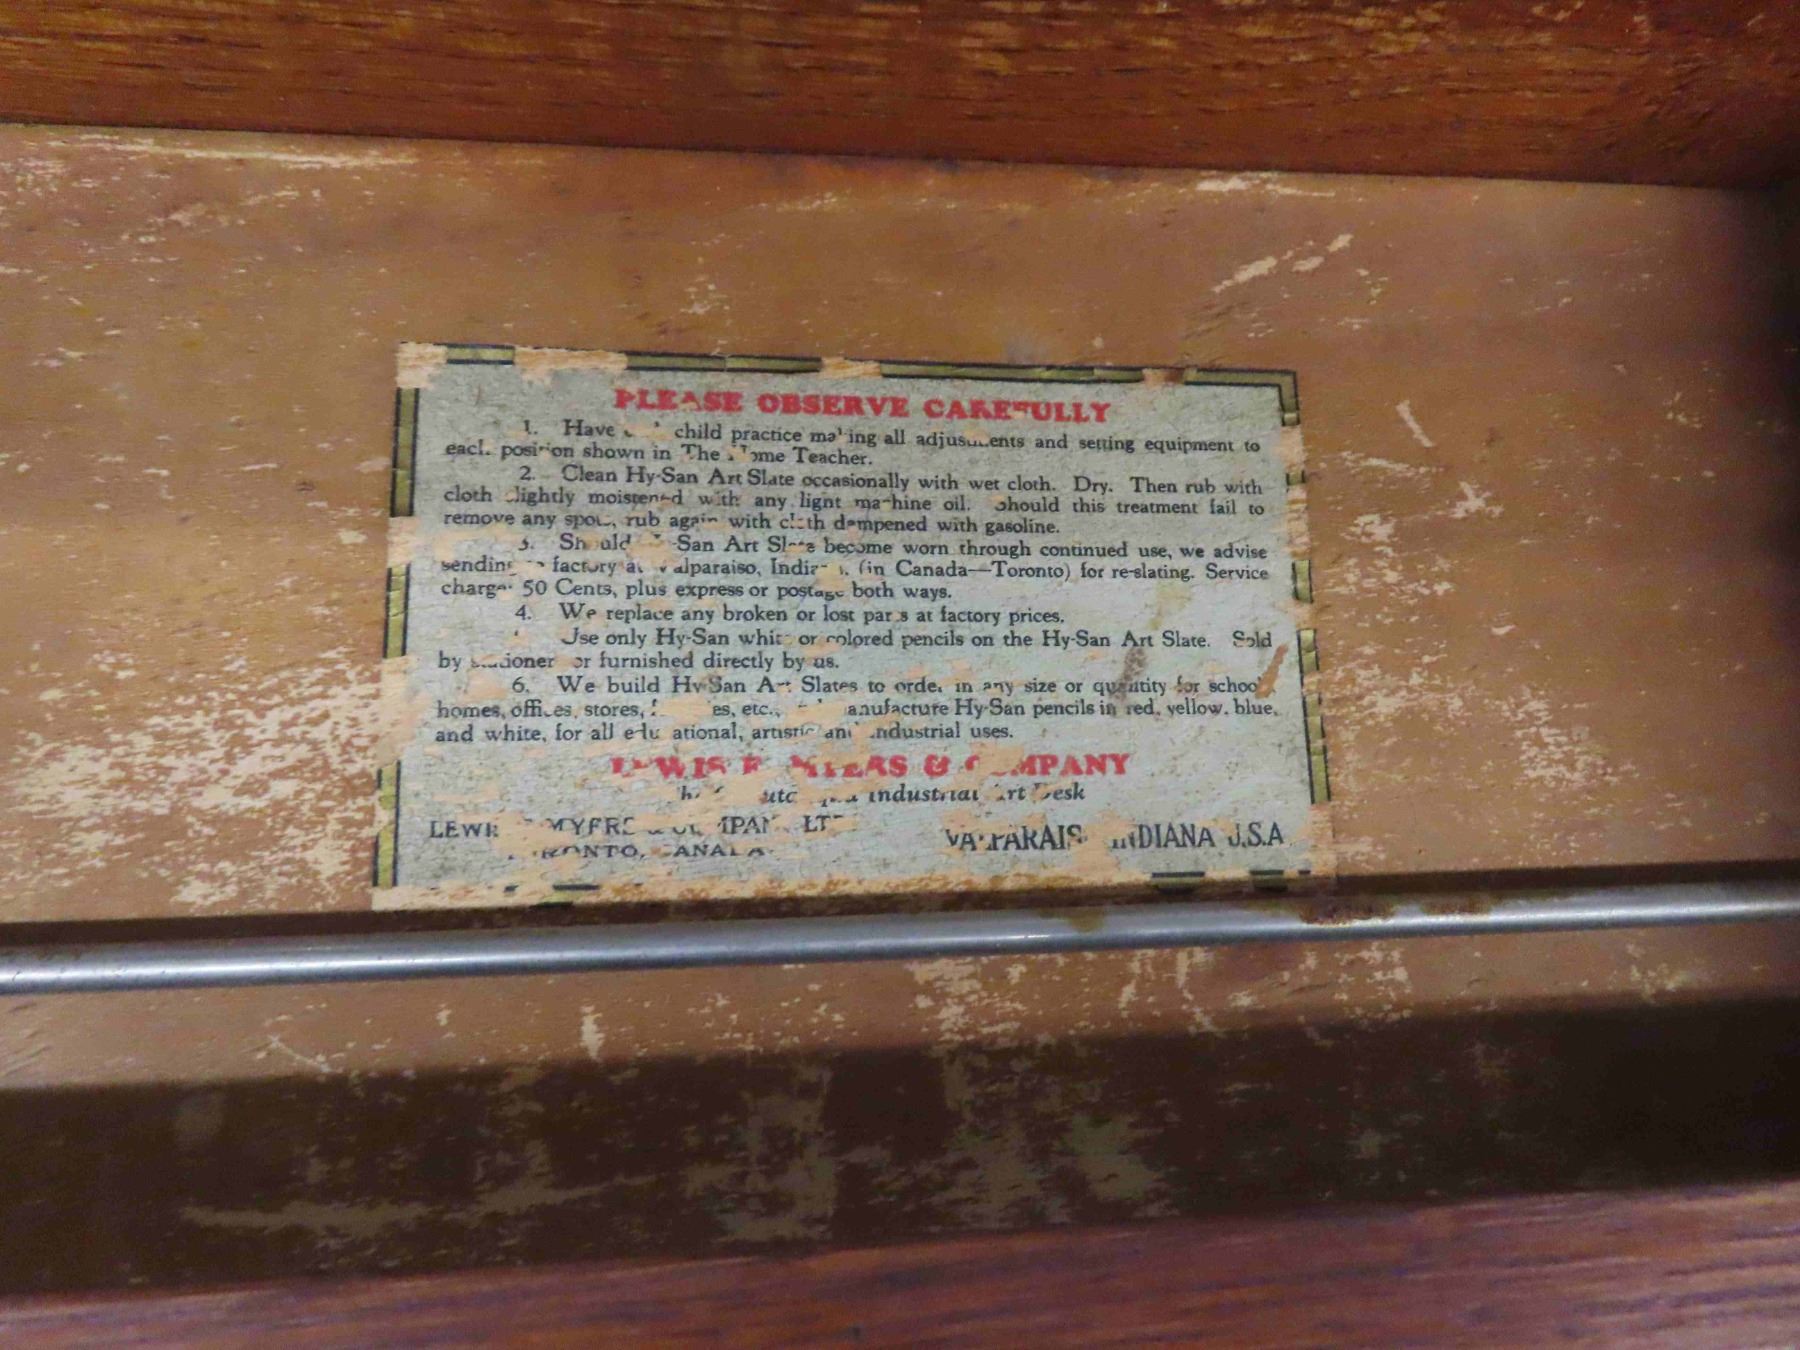 PLEASE OBSERVE CAREFULLY
1. Have child practice making all adjustments and setting equipment to
each position shown in The Home Teacher.
2. Clean Hy-San Art Slate occasionally with wet cloth. Dry. Then rub with
cloth slightly moistened with any light machine oil. Should this treatment fail to
remove any spots, rub again with cloth dampened with gasoline.
3. Should Hy-San Art Slate become worn through continued use, we advise
sending to factory at Valparaiso, Indiana, (in Canada—Toronto) for re-slating. Service
charge 50 Cents, plus express or postage both ways.
4. We replace any broken or lost parts at factory prices.
Use only Hy-San white or colored pencils on the Hy-San Art Slate. Sold
by stationer or furnished directly by us.
6. We build Hy-San Art Slates to order in any size or quantity for schools,
homes, offices, stores, etc., manufacture Hy-San pencils in red, yellow, blue,
and white, for all educational, artistic and industrial uses.
LEWIS E. MYERS & COMPANY
The Industrial Art Desk
LEWIS MYERS & COMPANY LTD VALPARAISO INDIANA U.S.A.
TORONTO, CANADA